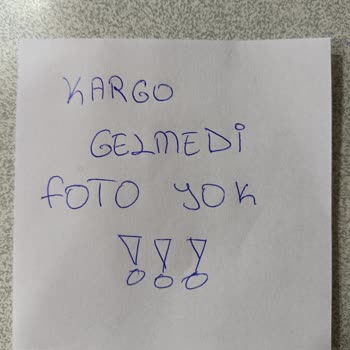 KARGO
GELMEDİ
FOTO YOK
!!!